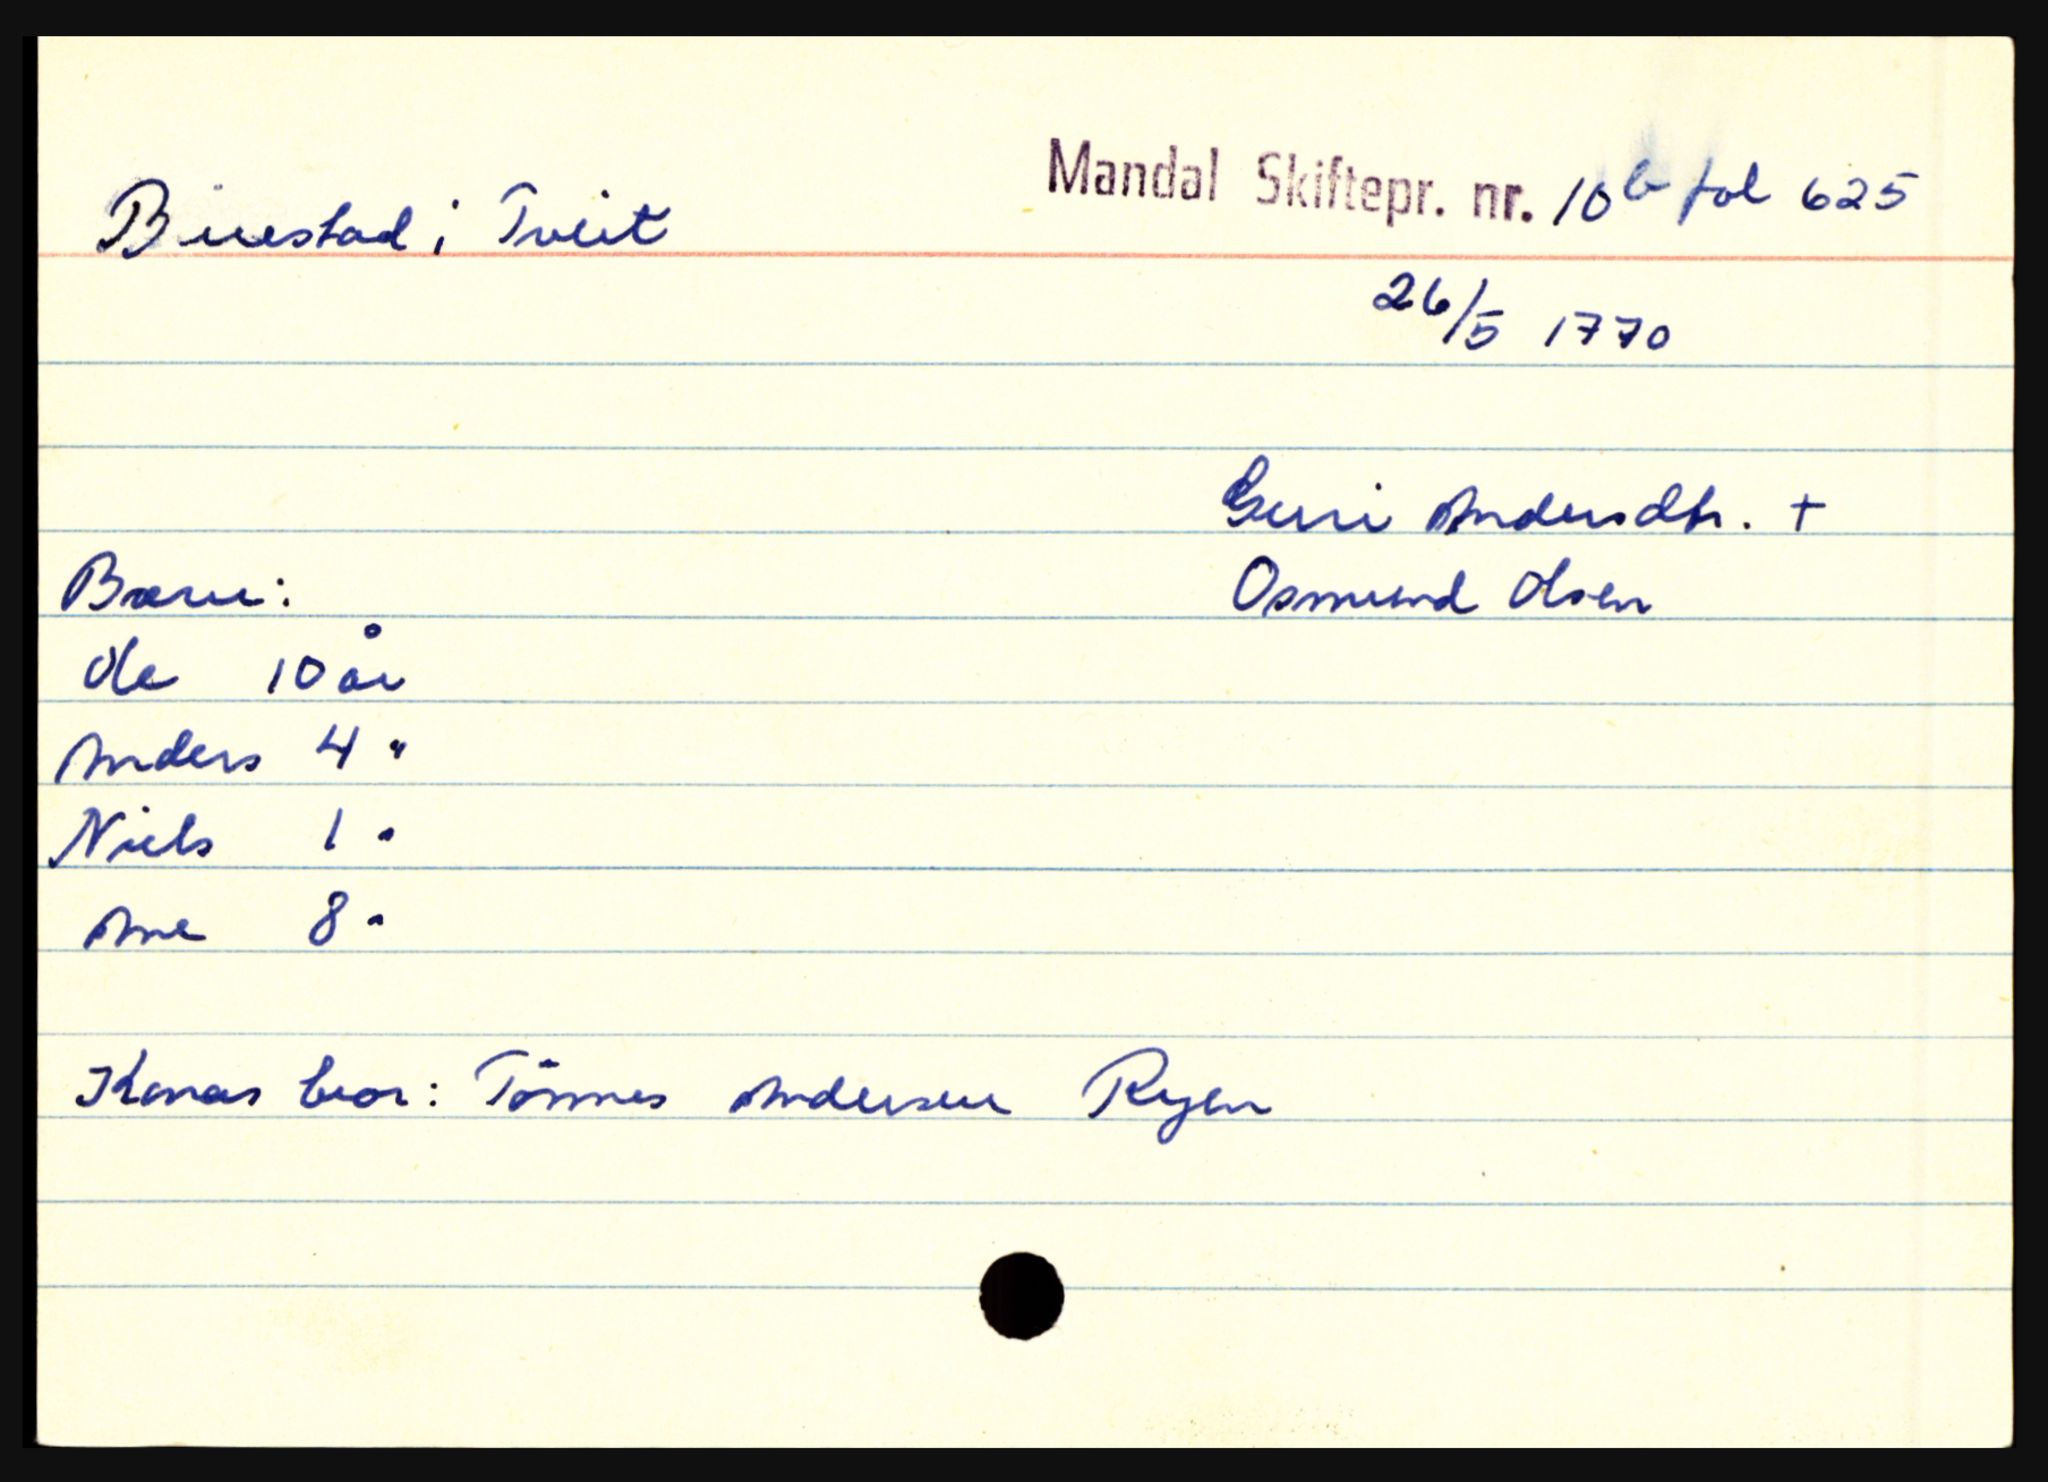 Mandal Skiftepr. nr. 10b fol 625
Birestad i Tveit
26/5 1770
Guri Andersdtr. +
Børn: Osmund Olsen
Ole 10 år
Anders 4 "
Niels 1 "
Ane 8 "
Konas bror: Tönnes Andersen Ryen